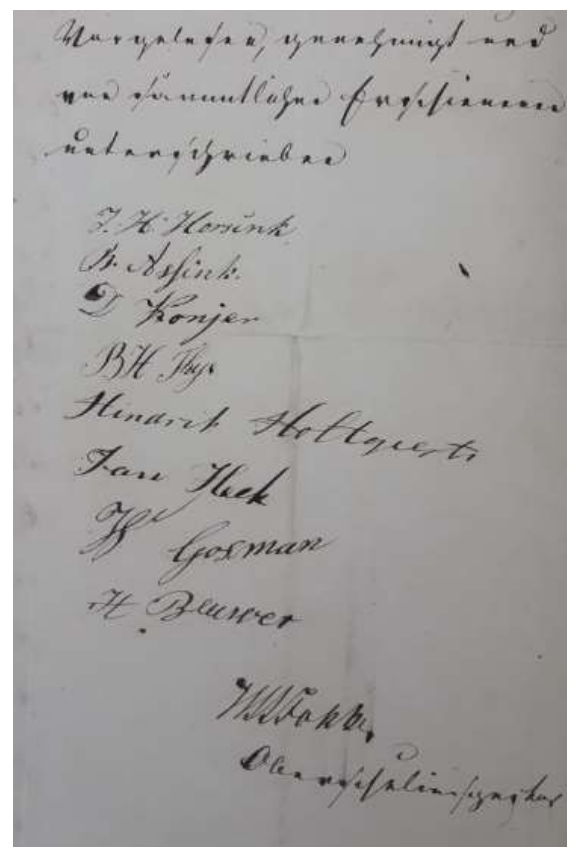 Vorgelesen, genehmigt und
von sämmtlichen Erschienenen
unterschrieben
J. H. Horsink
B. Assink.
D Konjer
BH Thys
Hindrik
Jan Heck
W Gosman
H Beuwer
Fokke.
Oberschulinspektor